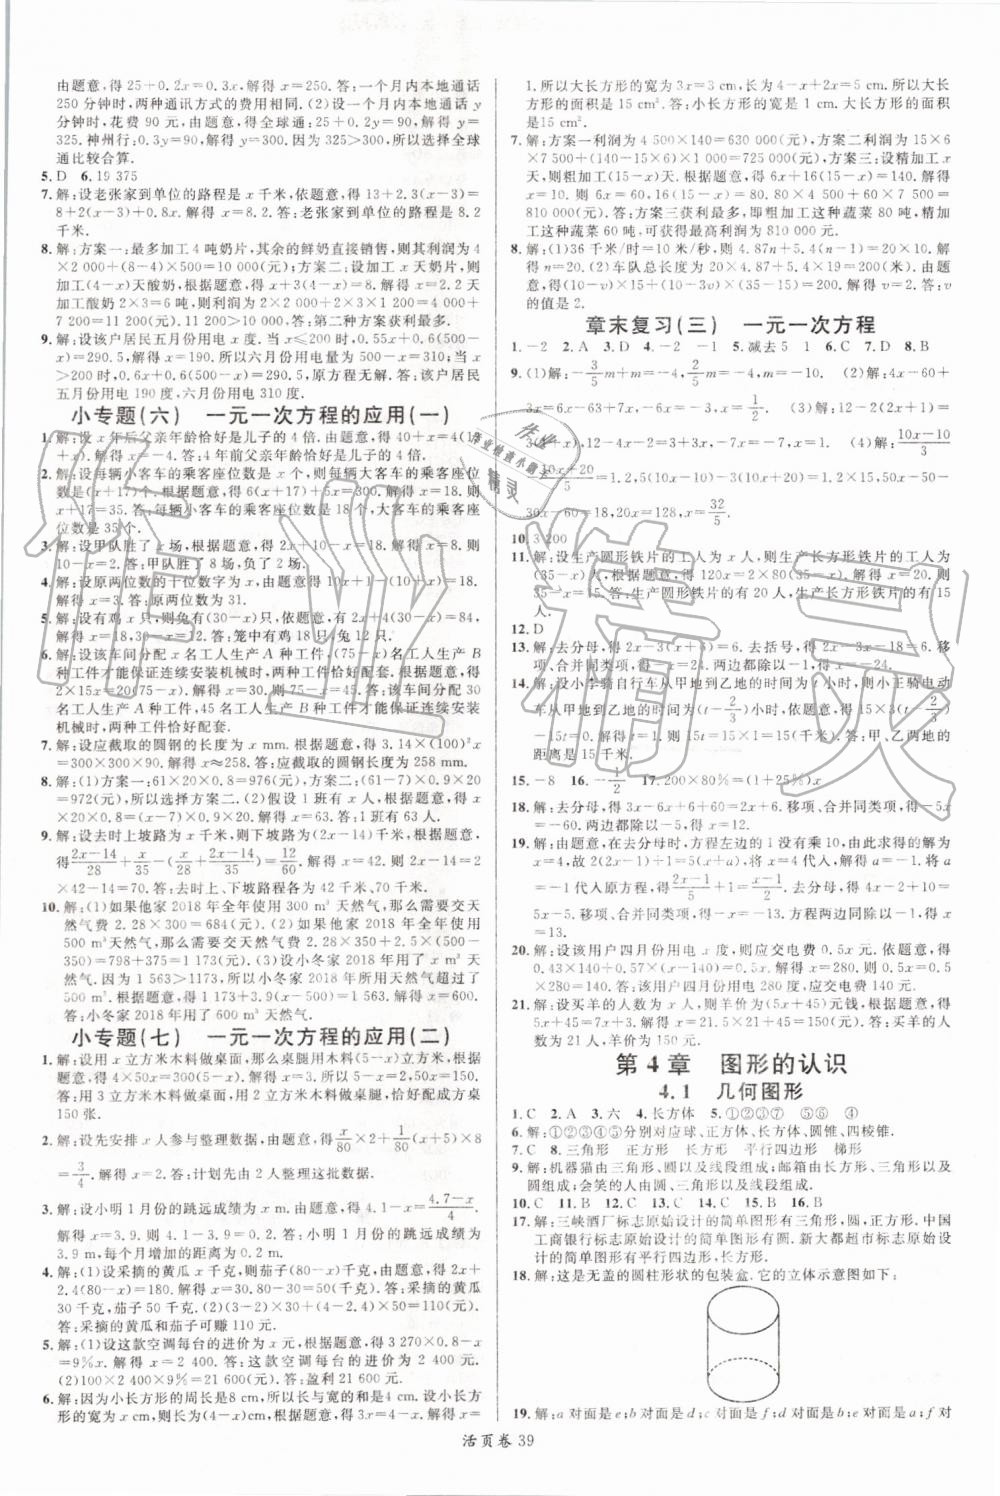 由题意,得 25+0.2x=0.3x.解得 x=250.答:一个月内本地通话
250 分钟时,两种通讯方式的费用相同.(2)设一个月内本地通话 y
分钟时,花费 90 元,由题意,得全球通:25+0.2y=90,解得 y=
325.神州行:0.3y=90,解得 y=300.因为 325>300,所以选择全球
通比较合算.
5.D 6.19 375
7.解:设老张家到单位的路程是 x 千米,依题意,得 13+2.3(x-3)=
8+2(x-3)+0.8x.解得 x=8.2.答:老张家到单位的路程是 8.2
千米.
8.解:方案一:最多加工 4 吨奶片,其余的鲜奶直接销售,则其利润为 4
×2 000+(8-4)×500=10 000(元);方案二:设加工 x 天奶片,则
加工(4-x)天酸奶,根据题意,得 x+3(4-x)=8.解得 x=2.2 天
加工酸奶 2×3=6 吨,所以利润为 2×2 000+2×3×1 200=4 000+
7 200=11 200(元).11 200>10 000.答:第二种方案获利最多.
9.解:设该户居民五月份用电 x 度.当 x≤200 时,得 0.55x+0.6(500
-x)=290.5,解得 x=190.所以六月份用电量为 500-x=310.当 x
>200 时,得 0.6x+0.6(500-x)=290.5,原方程无解.答:该户居民
五月份用电 190 度,六月份用电 310 度.
小专题(六) 一元一次方程的应用(一)
1.解:设 x 年后父亲年龄恰好是儿子的 4 倍.由题意,得 40+x=4(13
+x).解得 x=-4.答:4 年前父亲年龄恰好是儿子的 4 倍.
2.解:设每辆小客车的乘客座位数是 x 个,则每辆大客车的乘客座位
数是(x+17)个.根据题意,得 6(x+17)+5x=300.解得 x=18.则
x+17=35.答:每辆小客车的乘客座位数是 18 个,大客车的乘客座
位数是 35 个.
3.解:设甲队胜了 x 场,根据题意,得 3x+(10-x)=26.解得 x=8.则
10-x=2.答:甲队胜了 8 场,负了 2 场.
4.解:设原两位数的十位数字为 x,由题意,得
解得 x=3.答:原两位数为 31.
5.解:设有鸡 x 只,则兔有(30-x)只.依题意,有 2x+4(30-x)=84,
解得 x=18.30-x=12.答:笼中有鸡 18 只,兔 12 只.
6.解:设该车间分配 x 名工人生产 A 种工件,(75-x)名工人生产 B
种工件才能保证连续安装机械时,两种工件恰好配套.根据题意,得
2×15x=20(75-x).解得 x=30,则 75-x=45.答:该车间分配 30
名工人生产 A 种工件,45 名工人生产 B 种工件才能保证连续安装
机械时,两种工件恰好配套.
7.解:设应截取的圆钢的长度为 x mm.根据题意,得 3.14×(100)²x
=300×300×90.解得 x≈258.答:应截取的圆钢长度为 258 mm.
8.解:(1)方案一:61×20×0.8=976(元),方案二:(61-7)×20×0.9
=972(元),所以选择方案二.(2)假设 1 班有 x 人,根据题意,得 x×
20×0.8=(x-7)×0.9×20.解得 x=63.答:1 班有 63 人.
9.解:设去时上坡路为 x 千米,则下坡路为(2x-14)千米,根据题意,
得 (2x-14)/28 + x/35 - (x/28 + (2x-14)/35) = 12/60.解得 x=42.则 2x-14=2
×42-14=70.答:去时上、下坡路程各为 42 千米、70 千米.
10.解:(1)如果他家 2018 年全年使用 300 m³ 天然气,那么需要交天
然气费 2.28×300=684(元).(2)如果他家 2018 年全年使用
500 m³天然气,那么需要交天然气费 2.28×350+2.5×(500-350)
=798+375=1 173(元).(3)设小冬家 2018 年用了 x m³ 天然
气.因为 1 563>1173,所以小冬家 2018 年所用天然气超过了
500 m³.根据题意,得
小冬家 2018 年用了 600 m³天然气.
小专题(七) 一元一次方程的应用(二)
1.解:设用 x 立方米木料做桌面,那么桌腿用木料(5-x)立方米,根据
题意,得 4×50x=300(5-x).解得 x=3.5-x=2.50x=150.答:
用 3 立方米木料做桌面,用 2 立方米木料做桌腿,恰好配成方桌
150 张.
2.解:设先安排 x 人参与整理数据,由题意,得 x/80×2+(x+5)/80×8
=3/4.解得 x=2.答:计划先由 2 人整理这批数据.
3.解:设小明 1 月份的跳远成绩为 x m,则 4.1-x=(4.7-x)/4.
解得 x=3.9.则 4.1-3.9=0.2.答:小明 1 月份的跳远成绩为
3.9 m,每个月增加的距离为 0.2 m.
4.解:(1)设采摘的黄瓜 x 千克,则茄子(80-x)千克,由题意,得 2x+
2.4(80-x)=180.解得 x=30.80-x=50(千克).答:采摘的黄瓜
30 千克,茄子 50 千克.(2)(3-2)×30+(4-2.4)×50=110(元).
答:采摘的黄瓜和茄子可赚 110 元.
5.解:(1)设这款空调每台的进价为 x 元.根据题意,得 3 270×0.8-x
=9%x.解得 x=2 400.答:这款空调每台的进价为 2 400 元.
(2)100×2 400×9%=21 600(元).答:盈利 21 600 元.
6.解:因为小长方形的周长是8 cm,所以长与宽的和是4 cm.设小长方
形的宽为 x cm,则长为(4-x)cm,根据题意,得 3x=4-x.解得 x=
1.所以大长方形的宽为 3x=3 cm,长为 4-x+2x=5 cm.所以大长
方形的面积是 15 cm².答:小长方形的宽是 1 cm,大长方形的面积
是15 cm².
7.解:方案一利润为 4 500×140=630 000(元),方案二利润为 15×6
×7 500+(140-15×6)×1 000=725 000(元),方案三:设精加工 x
天,则粗加工(15-x)天.根据题意,得 6x+16(15-x)=140.解得
x=10.则 6x=60,16(15-x)=80.80×4 500+60×7 500=
810 000(元).答:方案三获利最多,即粗加工这种蔬菜 80 吨,精加
工这种蔬菜 60 吨,可获得最高利润为 810 000 元.
8.解:(1)36 千米/时=10 米/秒,则 4.87n+5.4(n-1)=20×10.
解得 n=20.(2)车队总长度为 20×4.87+5.4×19=200(米).由题
意,得(10-v)×15+(10-3v)×15=200-40.解得 v=2.答:v
的值是 2.
章末复习(三) 一元一次方程
1.-2 2.A 3.D 4.-2 -1 5.减去5 1 6.C 7.D 8.B
9.(1)解:-3/5m+m=-4,2/5m=-4,m=-10. (2)解:4x-60+
3x=6x-63+7x,4x+3x-6x-7x=-63+60,-6x=-3,x=
1/2. (3)解:
(4)解:(10x-10)/3
-(10x+20)/5=1.2,
30x-60=18,20x=
x=32/5.
10.3 200
11.解:设生产圆形铁片的工人为 x 人,则生产长方形铁片的工人为
(35-x)人.根据题意,得 120x=2×80(35-x).解得 x=20.则
35-x=15.答:生产圆形铁片的有 20 人,生产长方形铁片的有 15
人.
12.D
13.解:去分母,得 2x-3(x+6)=6.去括号,得 2x-3x-18=6.移项、
合并同类项,得 -x=24.两边都除以-1,得 x=-24.
14.解:设小李骑自行车从甲地到乙地的时间为 t 小时,则小王骑电动
车从甲地到乙地的时间为(t-2/3)小时,依题意,得 15×3(t-2/3)
=15t.解得 t=1.则 15t=15×1=15(千米).答:甲、乙两地的
距离是 15 千米.
15.-8 16.-1/2 17.200×80%=(1+25%)x
18.解:去分母,得 3x-6+6=6+8x+4.移项、合并同类项,得 -5x=
-60.两边都除以-5,得 x=12.
19.解:由题意,在去分母时,方程左边的 1 没有乘 10,由此求得的解为
x=4,故 2(2x-1)+1=5(x+a),将 x=4 代入,解得 a=-1.将 a
=-1 代入原方程,得 (2x-1)/5+1=(x-1)/2,去分母,得 4x-2+10=
5x-5.移项、合并同类项,得 -x=-13.方程两边同除以-1,得 x=
13.
20.解:设该用户四月份用电 x 度,则应交电费 0.5x 元.依题意,得
0.43×140+0.57×(x-140)=0.5x.解得 x=280.则 0.5x=0.5
×280=140.答:该用户四月份用电 280 度,应交电费 140 元.
21.解:设买羊的人数为 x 人,则羊价为(5x+45)元钱,根据题意,得
5x+45=7x+3.解得 x=21.5×21+45=150(元).答:买羊的人
数为 21 人,羊价为 150 元.
第 4 章 图形的认识
4.1 几何图形
1.C 2.A 3.六 4.长方体 5.①②③⑦ ⑤⑥ ④
6.解:①②③④⑤分别对应球、正方体、长方体、圆锥、四棱锥.
7.C 8.三角形 正方形 长方形 平行四边形 梯形
9.解:机器猫由三角形、圆以及线段组成;邮箱由长方形、三角形以及
圆组成;会笑的人由圆、三角形以及线段组成.
10.C 11.B 12.C 13.C 14.C 15.B 16.B
17.解:三峡酒厂标志原始设计的简单图形有三角形,圆,正方形.中国
工商银行标志原始设计的简单图形有圆.新大都超市标志原始设计
的简单图形有平行四边形,长方形.
18.解:这是无盖的圆柱形状的包装盒.它的立体示意图如下:
19.解:a 对面是 e;b 对面是 d;c 对面是 f;d 对面是 b;e 对面是 a;f 对
活页卷 39